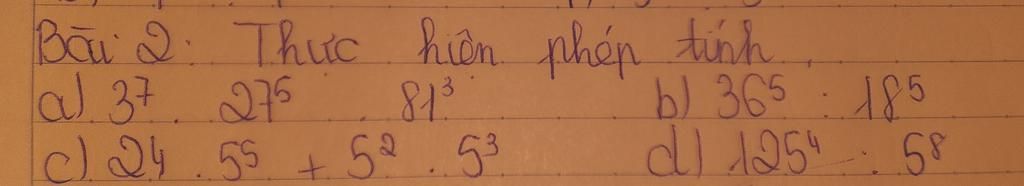 Bài 2: Thực hiện phép tính.
a) 3⁷ . 27⁵ . 81³ b) 36⁵ : 18⁵
c) 24 . 5⁵ + 5² . 5³ d) 125⁴ : 5⁸